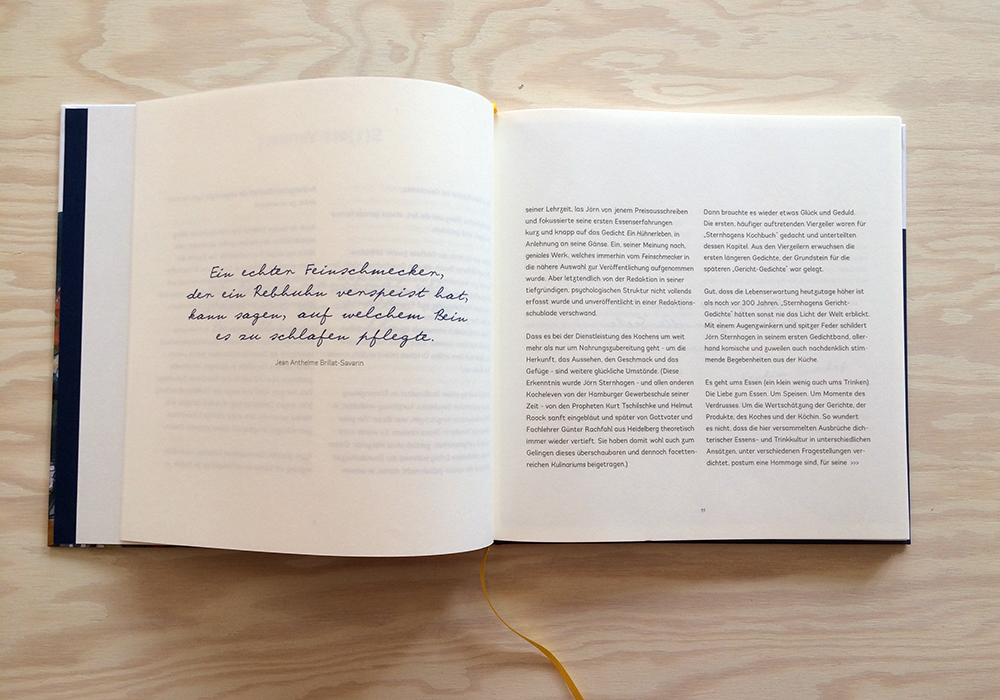 Ein echter Feinschmecker,
der ein Rebhuhn verspeist hat,
kann sagen, auf welchem Bein
es zu schlafen pflegte.
Jean Anthelme Brillat-Savarin
seiner Lehrzeit, las Jörn von jenem Preisausschreiben
und fokussierte seine ersten Essenserfahrungen
kurz und knapp auf das Gedicht Ein Hühnerleben, in
Anlehnung an seine Gänse. Ein, seiner Meinung nach,
geniales Werk, welches immerhin vom Feinschmecker in
die nähere Auswahl zur Veröffentlichung aufgenommen
wurde. Aber letztendlich von der Redaktion in seiner
tiefgründigen, psychologischen Struktur nicht vollends
erfasst wurde und unveröffentlicht in einer Redaktions-
schublade verschwand.
Dass es bei der Dienstleistung des Kochens um weit
mehr als nur um Nahrungszubereitung geht - um die
Herkunft, das Aussehen, den Geschmack und das
Gefüge - sind weitere glückliche Umstände. (Diese
Erkenntnis wurde Jörn Sternhagen - und allen anderen
Kocheleven von der Hamburger Gewerbeschule seiner
Zeit - von den Propheten Kurt Tschilschke und Helmut
Roock sanft eingebläut und später von Gottvater und
Fachlehrer Günter Rachfahl aus Heidelberg theoretisch
immer wieder vertieft. Sie haben damit wohl auch zum
Gelingen dieses überschaubaren und dennoch facetten-
reichen Kulinariums beigetragen.)
Dann brauchte es wieder etwas Glück und Geduld.
Die ersten, häufiger auftretenden Vierzeiler waren für
„Sternhagens Kochbuch“ gedacht und unterteilten
dessen Kapitel. Aus den Vierzeilern erwuchsen die
ersten längeren Gedichte, der Grundstein für die
späteren „Gericht-Gedichte“ war gelegt.
Gut, dass die Lebenserwartung heutzutage höher ist
als noch vor 300 Jahren, „Sternhagens Gericht-
Gedichte“ hätten sonst nie das Licht der Welt erblickt.
Mit einem Augenzwinkern und spitzer Feder schildert
Jörn Sternhagen in seinem ersten Gedichtband, aller-
hand komische und zuweilen auch nachdenklich stim-
mende Begebenheiten aus der Küche.
Es geht ums Essen (ein klein wenig auch ums Trinken).
Die Liebe zum Essen. Um Speisen. Um Momente des
Verdrusses. Um die Wertschätzung der Gerichte, der
Produkte, des Koches und der Köchin. So wundert
es nicht, dass die hier versammelten Ausbrüche dich-
terischer Essens- und Trinkkultur in unterschiedlichen
Ansätzen, unter verschiedenen Fragestellungen ver-
dichtet, postum eine Hommage sind, für seine >>>
11